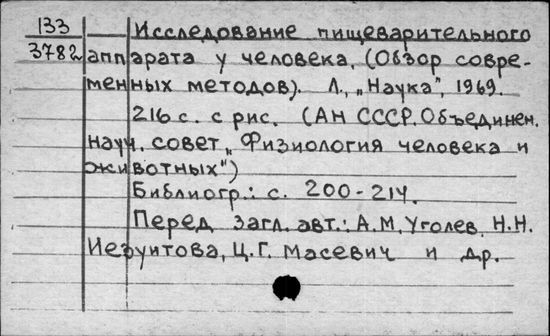 133 Исследование пищеварительного
3782 аппарата у человека. (Обзор совре-
менных методов). Л., „Наука", 1969.
216 с. с рис. (АН СССР. Объединен.
науч. совет „Физиология человека и
животных")
Библиогр.: с. 200-214.
Перед загл. авт.: А.М. Уголев, Н.Н.
Иезуитова, Ц.Г. Масевич и др.